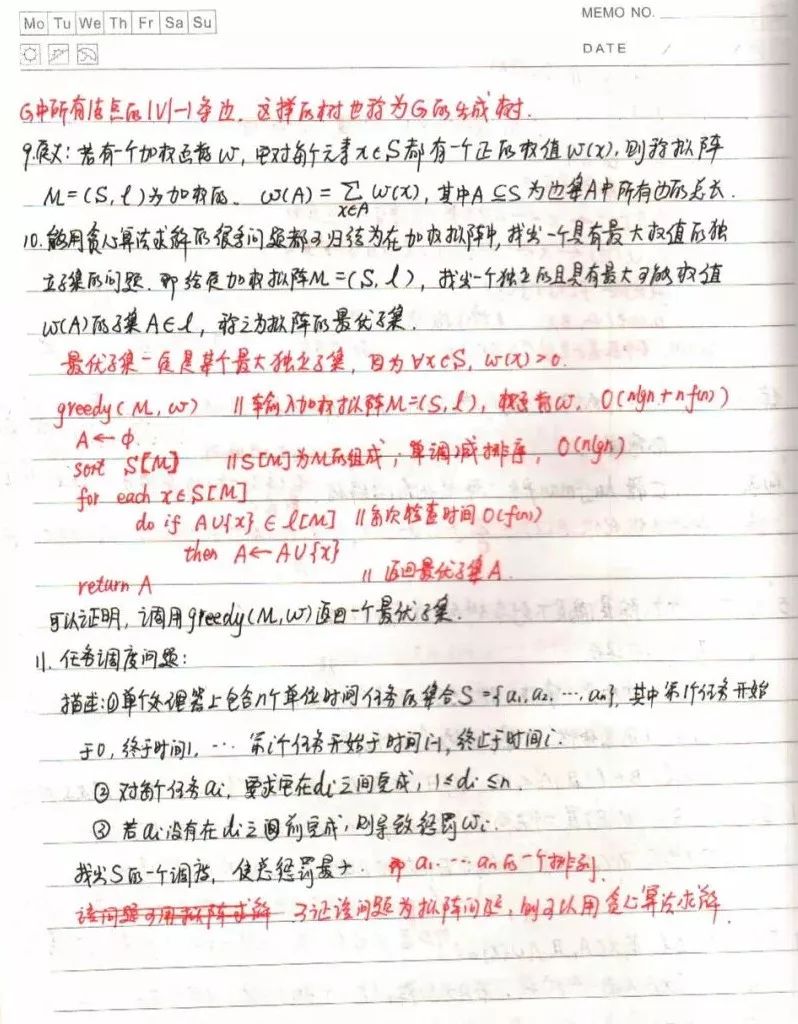 Mo Tu We Th Fr Sa Su
MEMO NO.
DATE /
G中所有结点的|V|-1条边. 这样的树也称为G的生成树.
9.定义: 若有一个加权函数w, 它对每个元素x∈S都有一个正的权值w(x), 则称拟阵
M=(S,l)为加权的. w(A)=∑w(x), 其中A⊆S为边集A中所有边的总长.
x∈A
10.能用贪心算法求解的很多问题都可归结为在加权拟阵中, 找出一个具有最大权值的独
立子集的问题. 即给定加权拟阵M=(S,l), 找出一个独立的且具有最大可能权值
w(A)的子集A∈l, 称之为拟阵的最优子集.
最优子集一定是某个最大独立子集, 因为∀x∈S, w(x)>0.
greedy(M,w) //输入加权拟阵M=(S,l), 权函数w. O(nlgn+nf(n))
A←φ.
sort S[M] //S[M]为M的组成, 单调减排序, O(nlgn)
for each x∈S[M]
do if A∪{x}∈l[M] //每次检查时间O(f(n))
then A←A∪{x}
return A // 返回最优子集A.
可以证明, 调用greedy(M,w)返回一个最优子集.
11. 任务调度问题:
描述:①单个处理器上包含n个单位时间任务的集合S={a1,a2,…,an}, 其中第1个任务开始
于0, 终于时间1, … 第i个任务开始于时间i-1, 终止于时间i.
② 对每个任务ai, 要求它在di之间完成, 1≤di≤n.
③ 若ai没有在di之前完成, 则导致惩罚wi.
找出S的一个调度, 使总惩罚最小. 即a1…an的一个排列.
该问题可用拟阵求解 可证该问题为拟阵问题, 则可以用贪心算法求解.